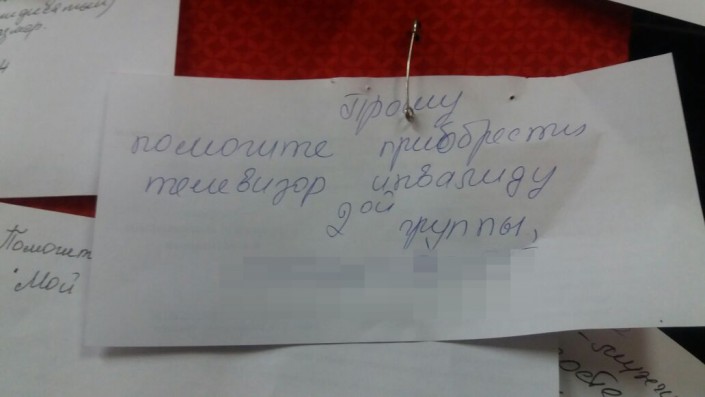 Прошу
помогите приобрести
телевизор инвалиду
2ой группы,
Помогит
"Мой